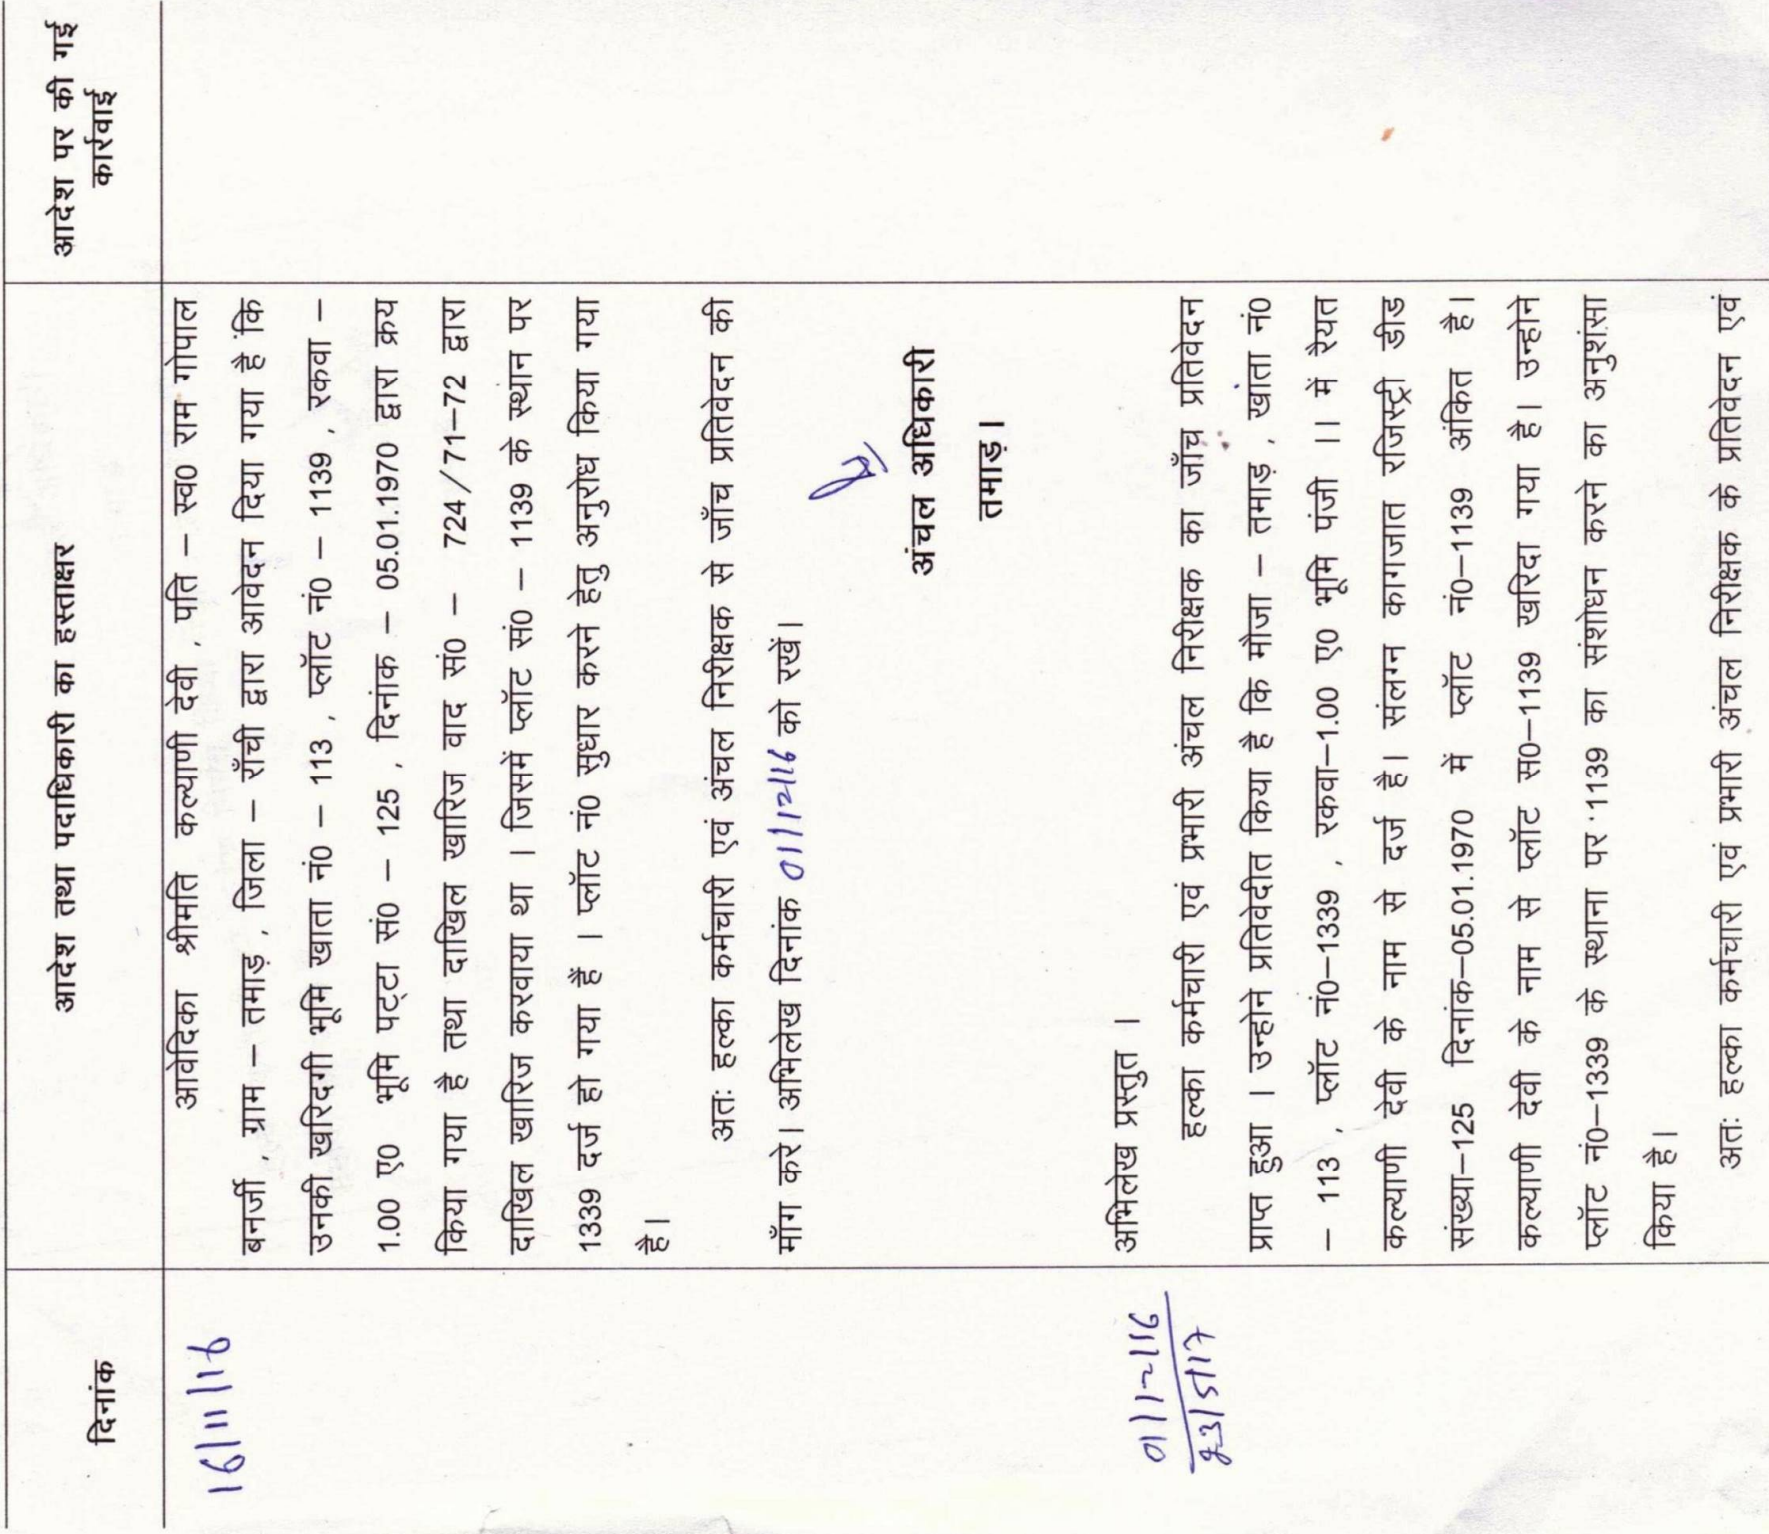 दिनांक
आदेश तथा पदाधिकारी का हस्ताक्षर
आदेश पर की गई
कार्रवाई
16/11/16
आवेदिका श्रीमति कल्याणी देवी , पति – स्व0 राम गोपाल
बनर्जी , ग्राम – तमाड़ , जिला – राँची द्वारा आवेदन दिया गया है कि
उनकी खरिदगी भूमि खाता नं0 – 113 , प्लॉट नं0 – 1139 , रकवा –
1.00 ए0 भूमि पट्टा सं0 – 125 , दिनांक – 05.01.1970 द्वारा क्रय
किया गया है तथा दाखिल खारिज वाद सं0 – 724/71–72 द्वारा
दाखिल खारिज करवाया था । जिसमें प्लॉट सं0 – 1139 के स्थान पर
1339 दर्ज हो गया है । प्लॉट नं0 सुधार करने हेतु अनुरोध किया गया
है।
अतः हल्का कर्मचारी एवं अंचल निरीक्षक से जाँच प्रतिवेदन की
माँग करे। अभिलेख दिनांक 01/12/16 को रखें।
अंचल अधिकारी
तमाड़।
01/12/16
23/5/17
अभिलेख प्रस्तुत ।
हल्का कर्मचारी एवं प्रभारी अंचल निरीक्षक का जाँच प्रतिवेदन
प्राप्त हुआ । उन्होने प्रतिवेदीत किया है कि मौजा – तमाड़ , खाता नं0
– 113 , प्लॉट नं0–1339 , रकवा–1.00 ए0 भूमि पंजी ।। में रैयत
कल्याणी देवी के नाम से दर्ज है। संलग्न कागजात रजिस्ट्री डीड
संख्या–125 दिनांक–05.01.1970 में प्लॉट नं0–1139 अंकित है।
कल्याणी देवी के नाम से प्लॉट स0–1139 खरिदा गया है। उन्होने
प्लॉट नं0–1339 के स्थाना पर 1139 का संशोधन करने का अनुशंसा
किया है।
अतः हल्का कर्मचारी एवं प्रभारी अंचल निरीक्षक के प्रतिवेदन एवं